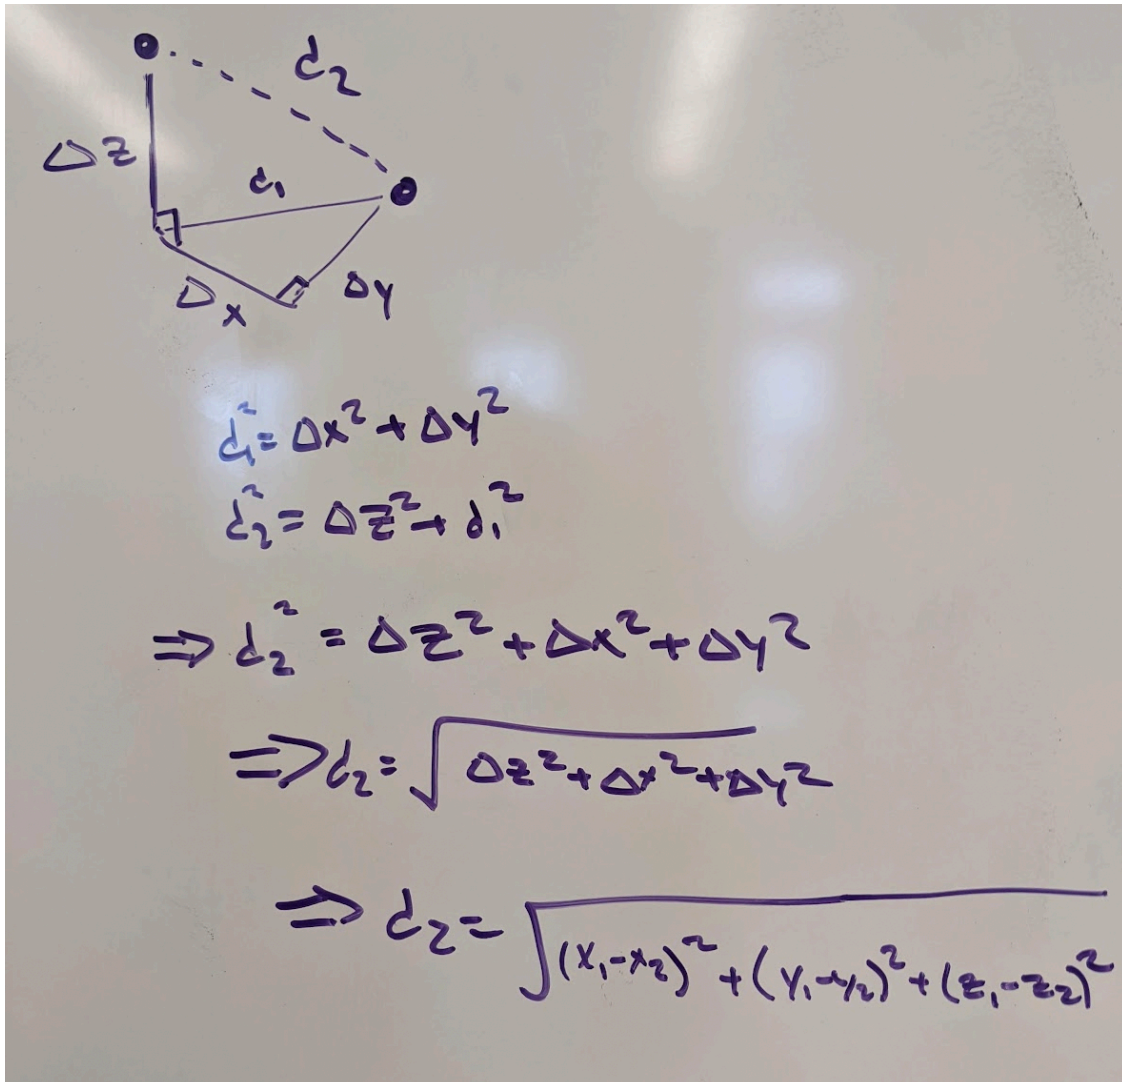 d₂
Δz
d₁
Δx
Δy
d₁² = Δx² + Δy²
d₂² = Δz² + d₁²
⇒ d₂² = Δz² + Δx² + Δy²
⇒ d₂ = √(Δz² + Δx² + Δy²)
⇒ d₂ = √((x₁-x₂)² + (y₁-y₂)² + (z₁-z₂)²)